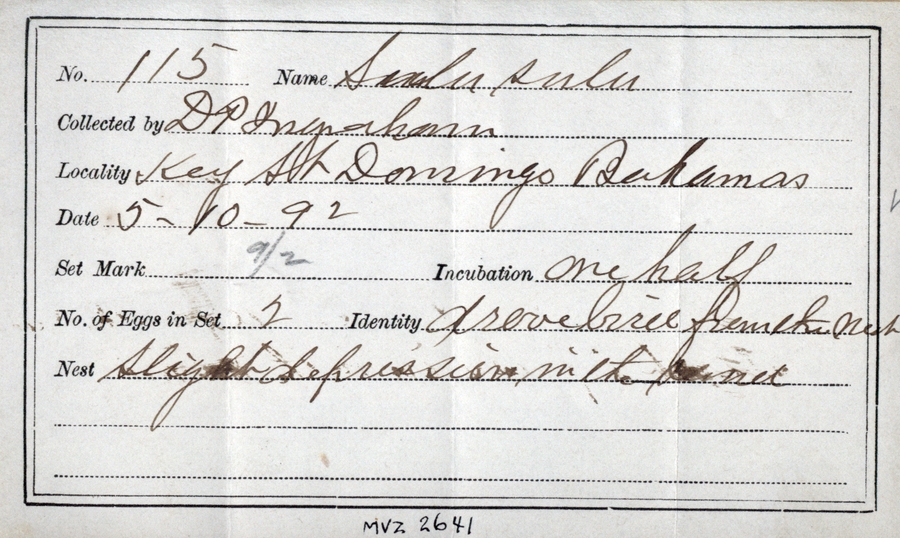 No. 115 Name Saula sula
Collected by D P Ingraham
Locality Key St Domingo Bahamas
Date 5-10-92
Set Mark 9/2 Incubation one half
No. of Eggs in Set 2 Identity drove bird from the nest
Nest Slight depression in the sand
MVZ 2641